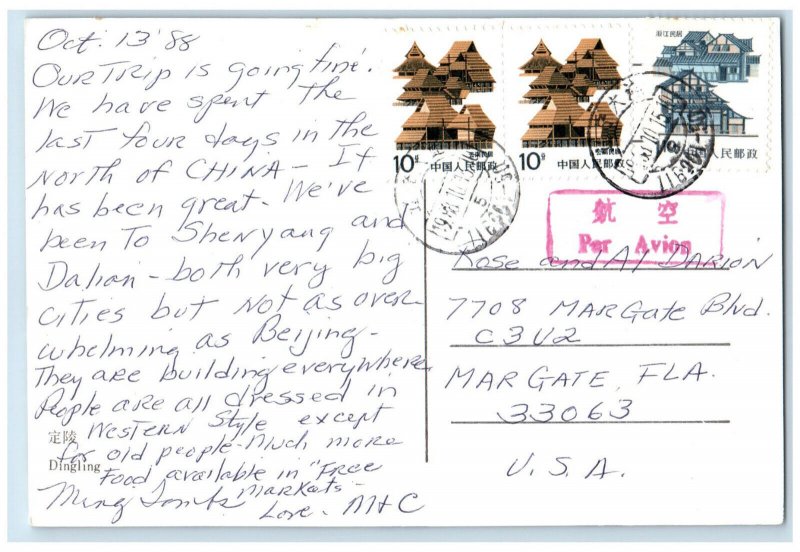 Oct. 13 '88
Our Trip is going fine.
We have spent the
last four days in the
North of CHINA - It
has been great. We've
been To Shenyang and
Dalian - both very big
cities but Not as over-
whelming as Beijing -
They are building everywhere
People are all dressed in
Western Style except
for old people - Much more
Food available in "Free
Markets -
Ming Tombs
Love - M+C
定陵
Dingling
10分
中国人民邮政
10分
中国人民邮政
浙江民居
中国人民邮政
航空
Par Avion
Rose and Al DARION
7708 MARGate Blvd.
C3U2
MARGATE, FLA.
33063
U.S.A.